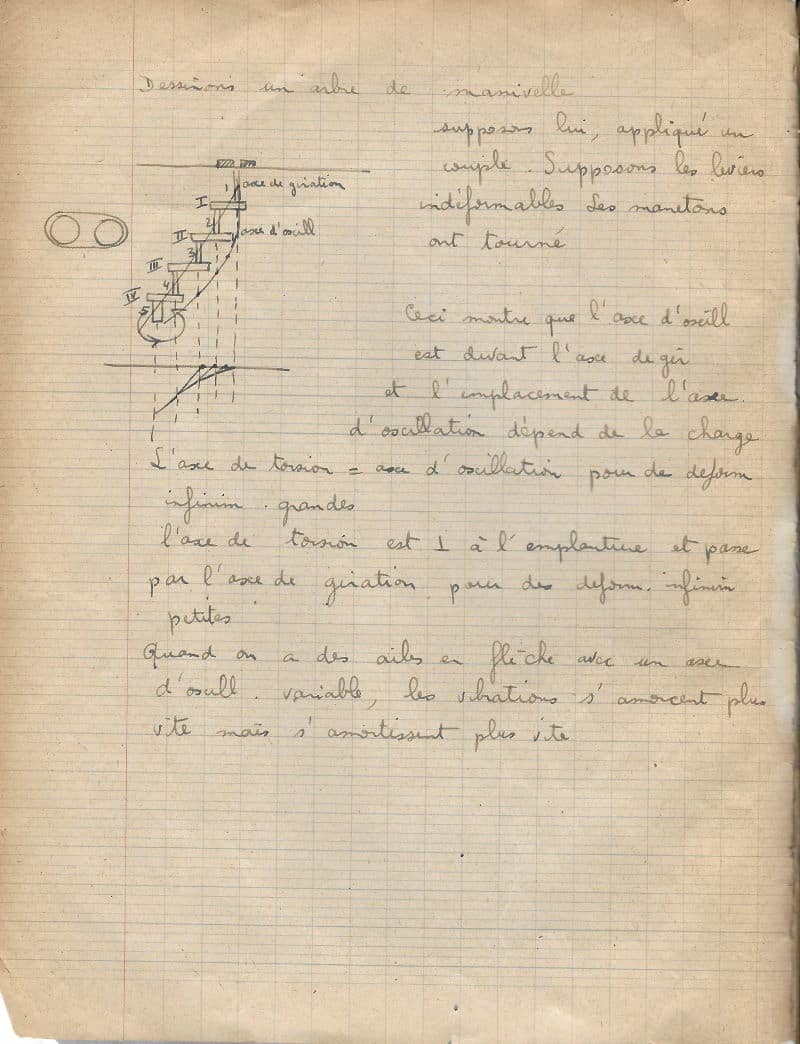 Dessinons un arbre de manivelle
supposons lui, appliqué un
couple. Supposons les leviers
indéformables Les manetons
ont tourné
1 axe de giration
I
2
axe d'oscill
II
3
III
4
IV
5
Ceci montre que l'axe d'oscill
est devant l'axe de gir
et l'emplacement de l'axe
d'oscillation dépend de la charge
L'axe de torsion = axe d'oscillation pour de deform
infinim. grandes
l'axe de torsion est ⊥ à l'emplanture et passe
par l'axe de giration pour des deform. infinim
petites
Quand on a des ailes en flèche avec un axe
d'oscill. variable, les vibrations s'amorcent plus
vite mais s'amortissent plus vite